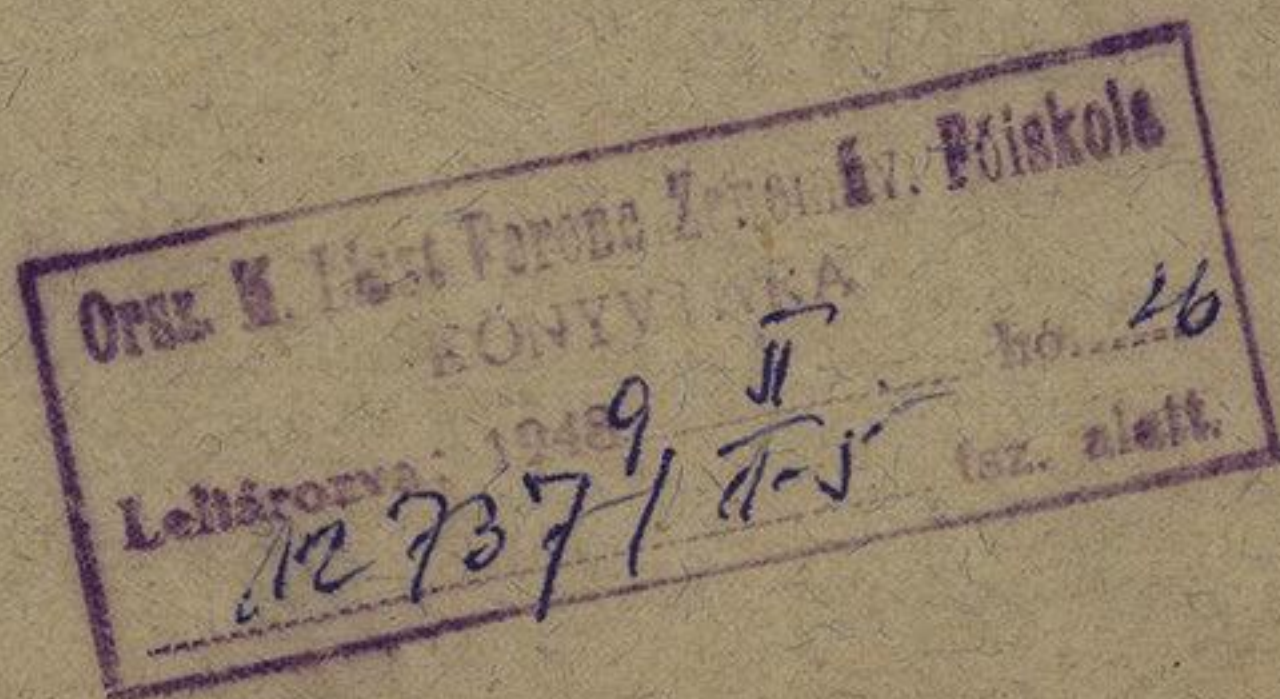 Orsz. M. Liszt Ferenc Zeneműv. Főiskola
KÖNYVTÁRA
Leltározva: 19489 II hó 26
12737/II-5 lsz. alatt.